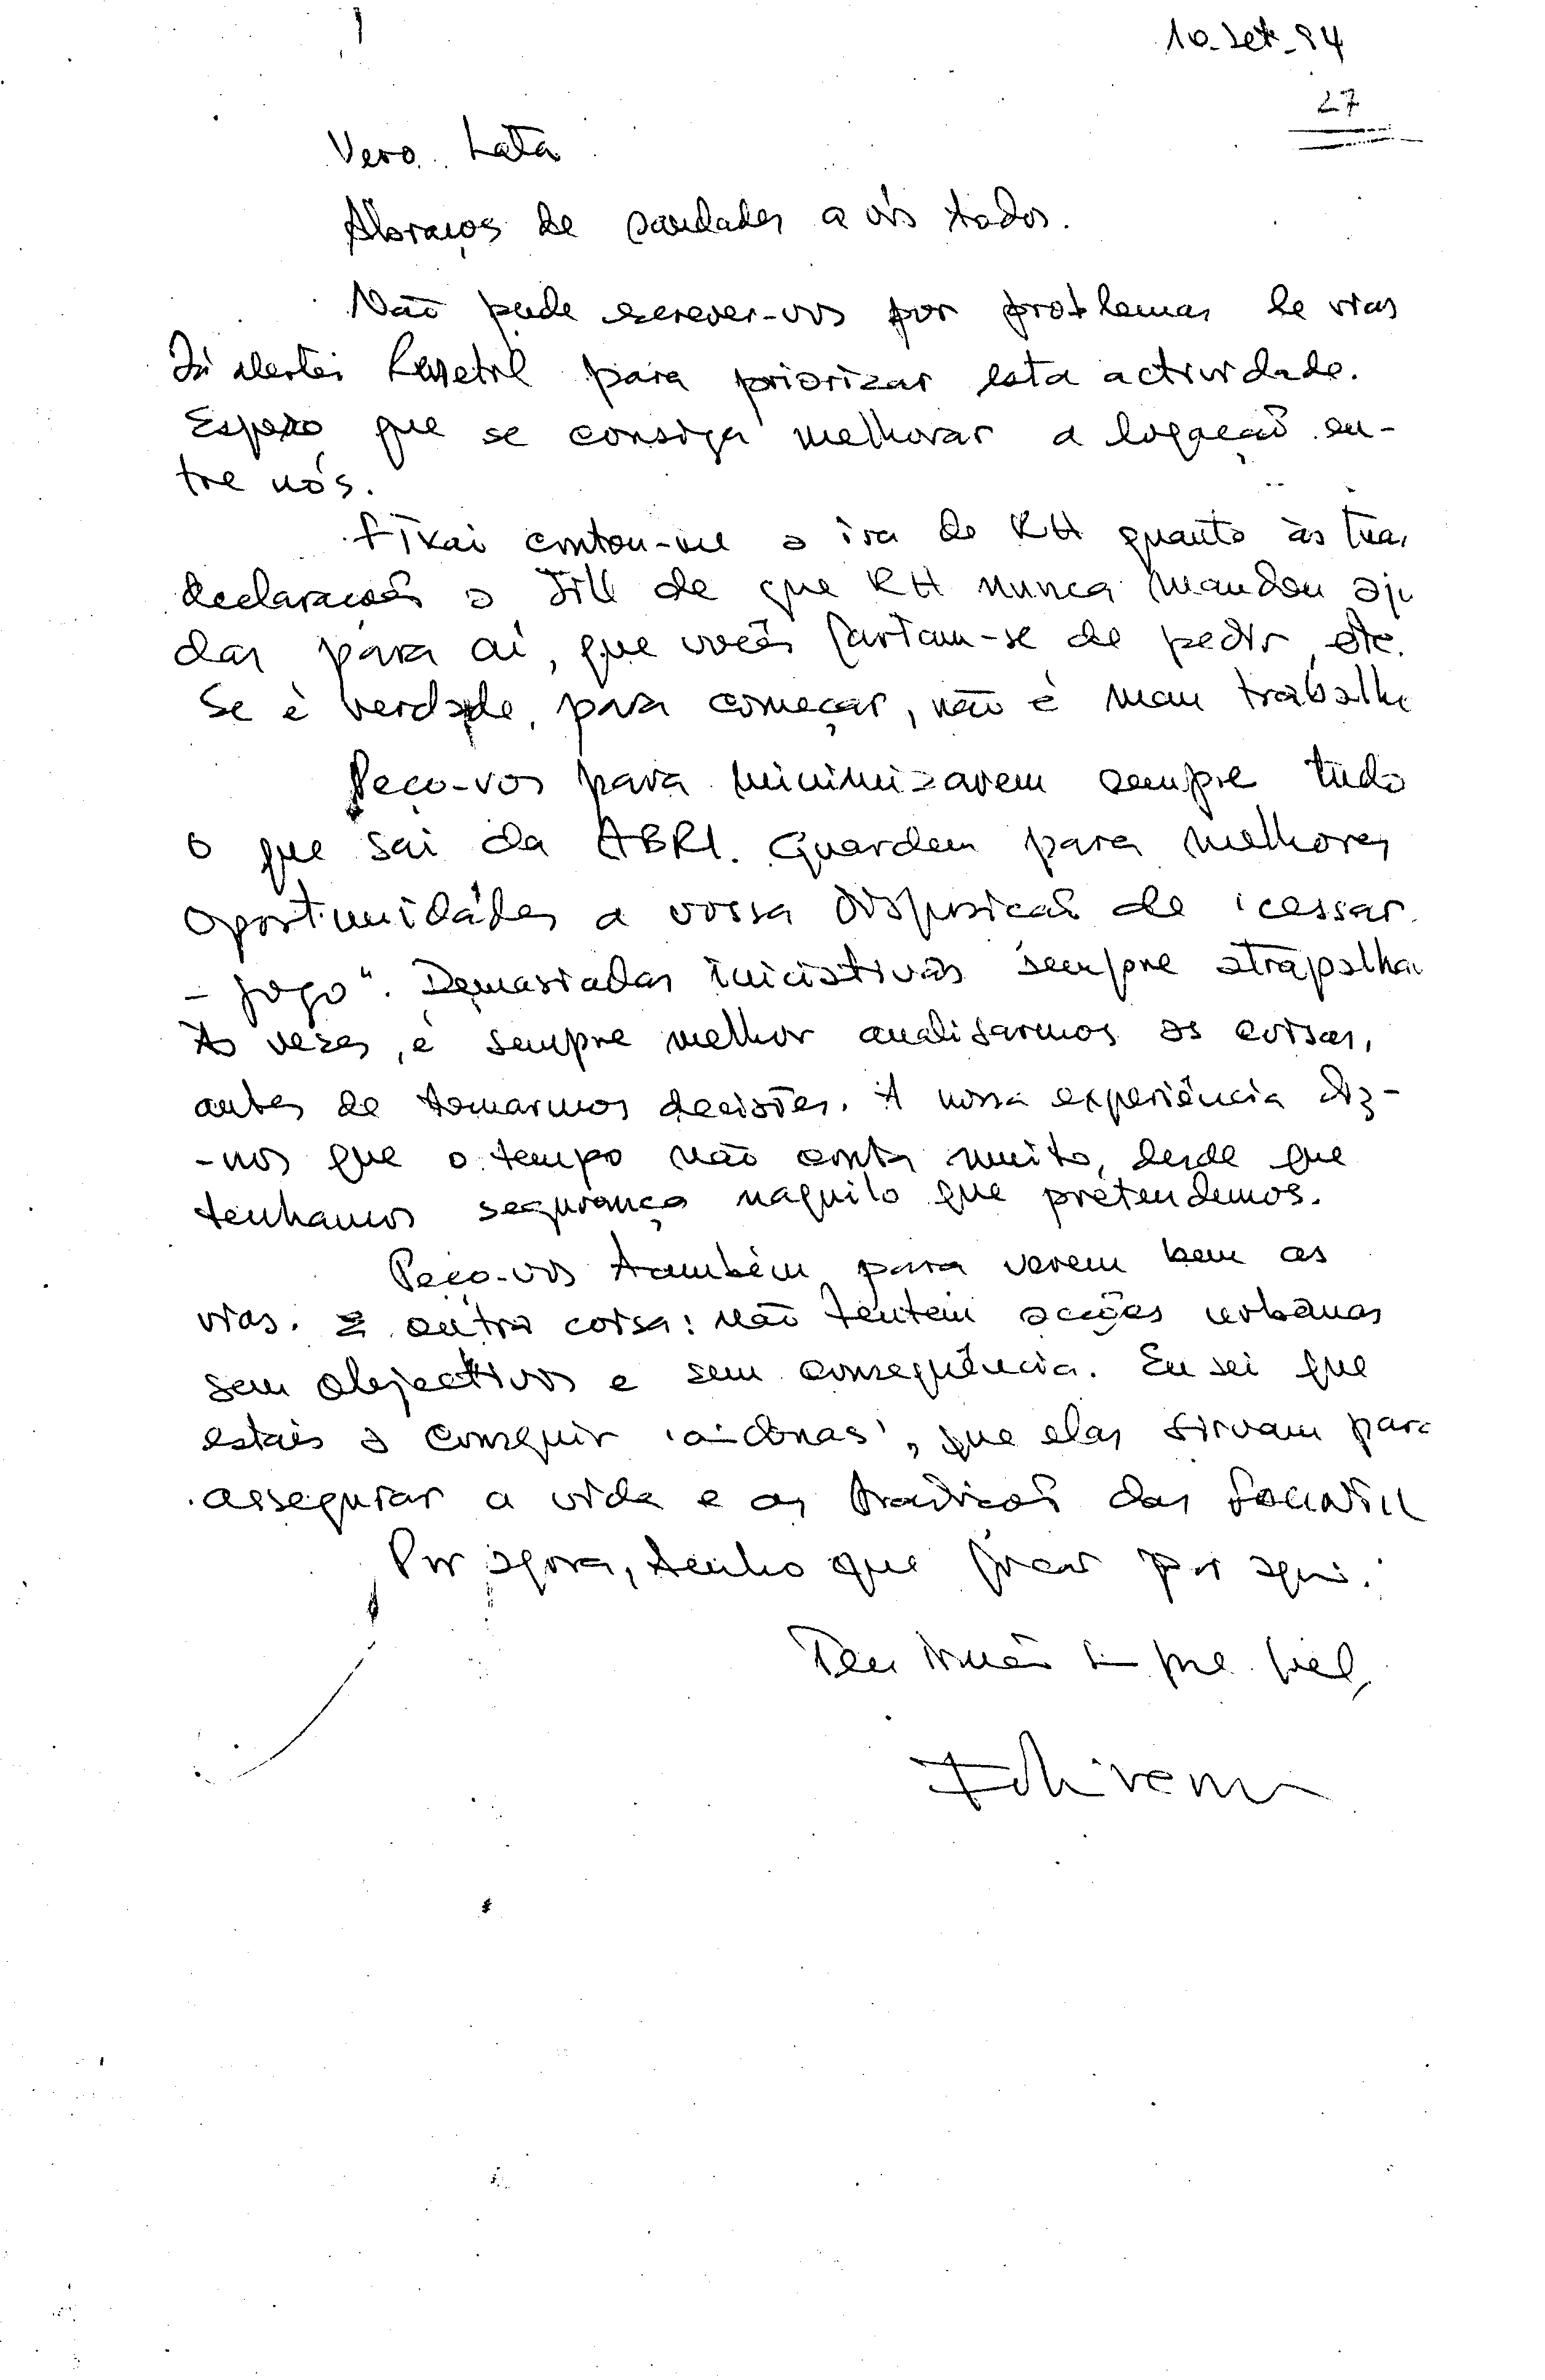 10-Set-94
27
Vero Lata
Abraços de saudades a vós todos.
Não pude escrever-vos por problemas de vias
Já alertei para priorizar esta actividade.
Espero que se consiga melhorar a logação en-
tre nós.
contou-me a ira de RH quanto às tuas
declarações a de que RH nunca mandou aju
das para aí, que vocês fartam-se de pedir, etc.
Se é verdade, para começar, não é mau trabalho
Peço-vos para minimizarem sempre tudo
o que sai da ABRI. Guardem para melhores
oportunidades a vossa disposição de cessar
-fogo". Demasiadas iniciativas sempre atrapalha
Às vezes, é sempre melhor analisarmos as coisas,
antes de tomarmos decisões. A nossa experiência diz-
-nos que o tempo não conta muito, desde que
tenhamos segurança naquilo que pretendemos.
Peço-vos também para verem bem as
vias. E outra coisa: não tentem acções urbanas
sem objectivos e sem consequência. Eu sei que
estais a conseguir , que elas sirvam para
assegurar a vida e as das
Por agora, tenho que ficar por aqui.
Teu irmão sempre fiel,